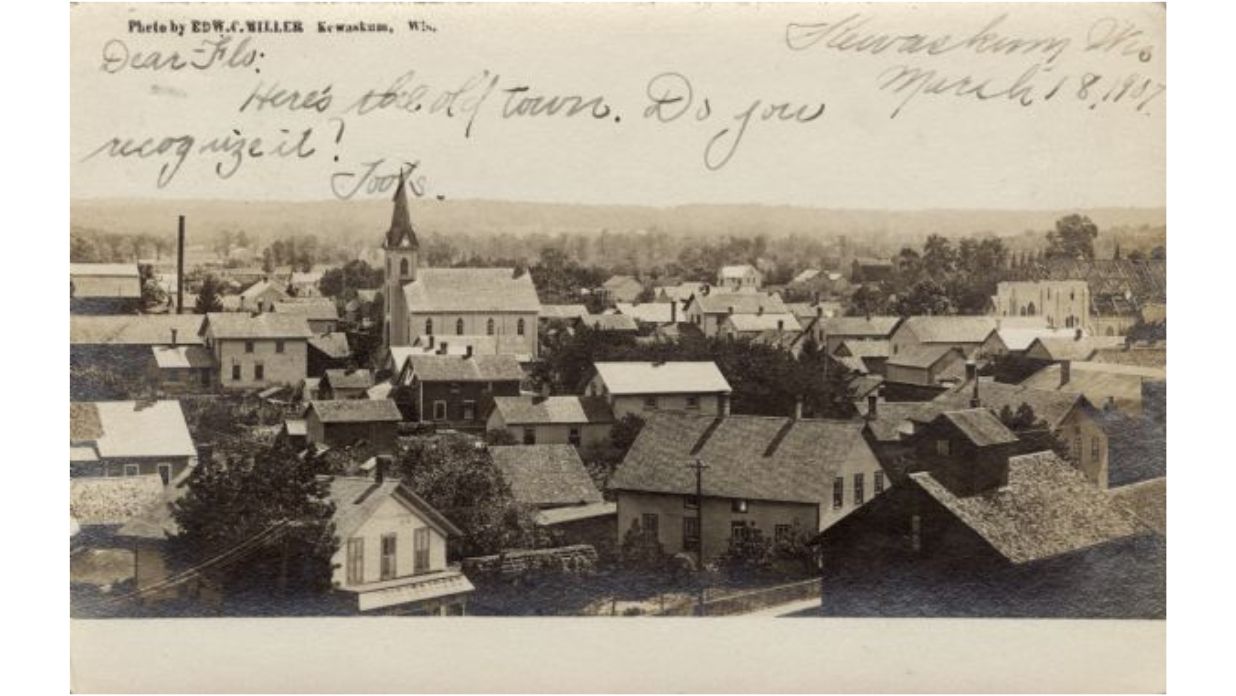 Photo by EDW. C. MILLER Kewaskum, Wis.
Kewaskum, Wis
March 18, 1907
Dear Flo:
Here's the old town. Do you
recognize it!
Toots.